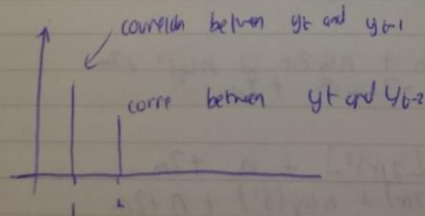 correlation between yt and yt-1
corre between yt and yt-2
1
2